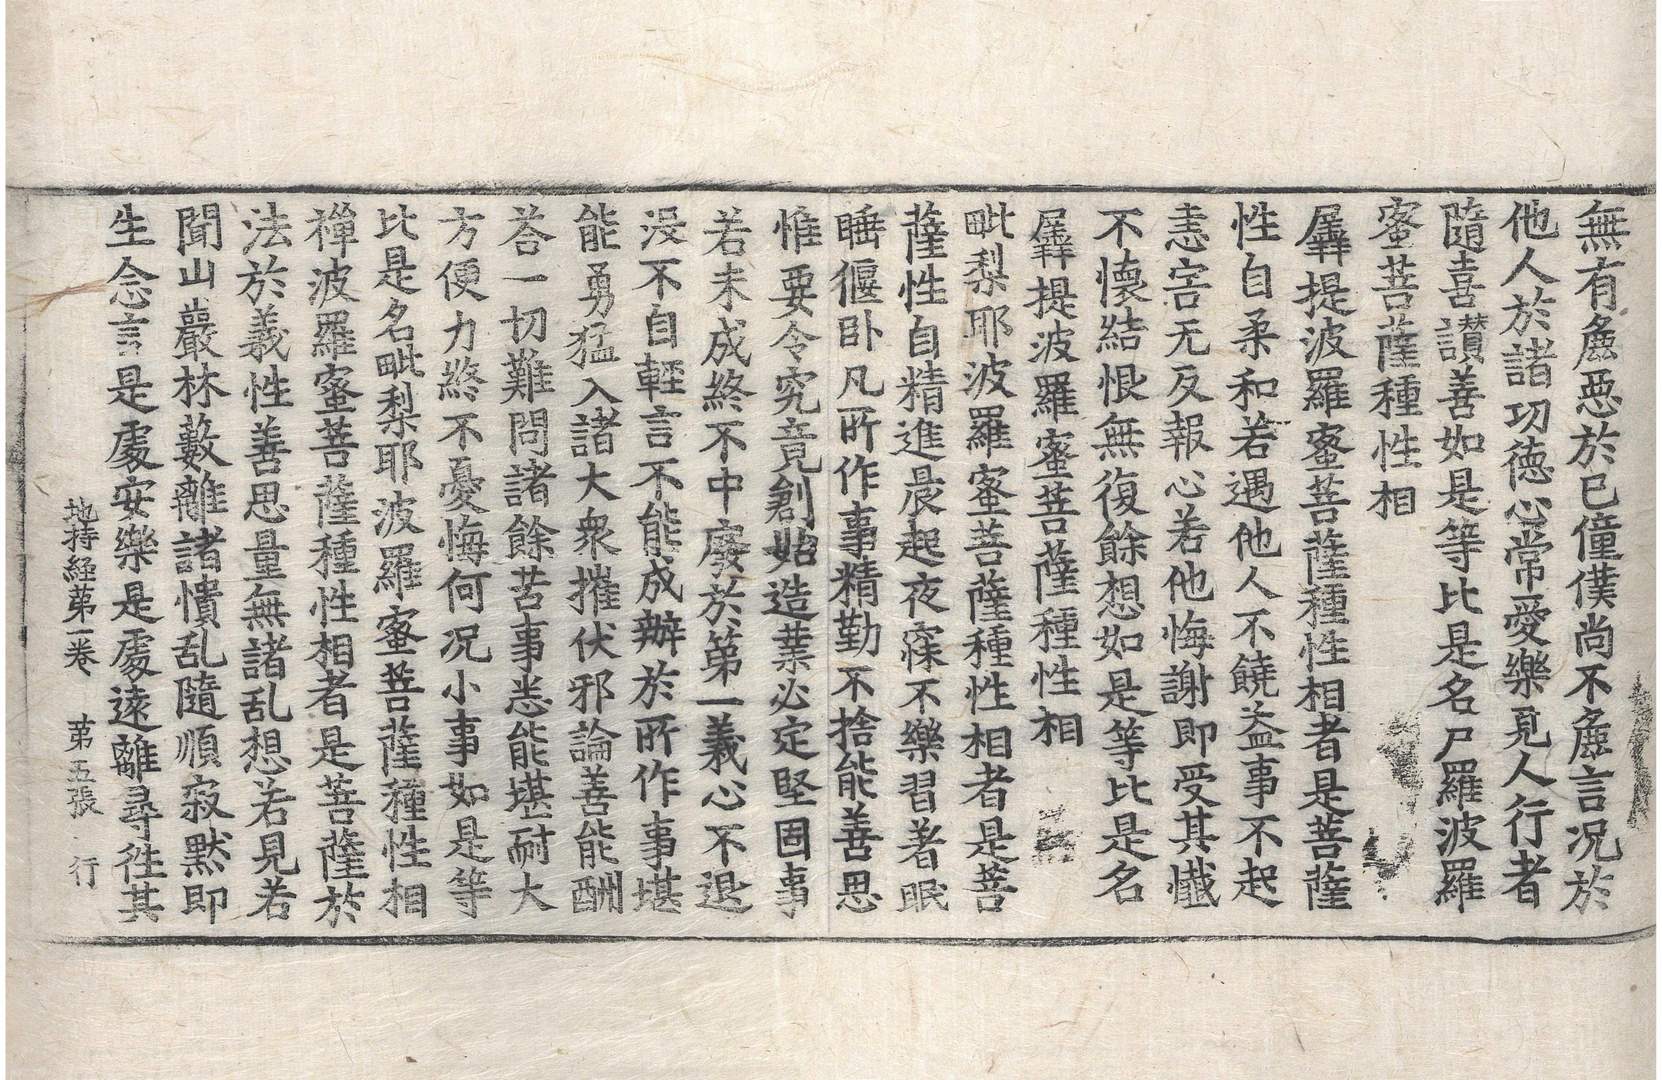 無有麁惡於己僮僕尚不麁言况於
他人於諸功德心常愛樂見人行者
隨喜讃善如是等比是名尸羅波羅
蜜菩薩種性相
羼提波羅蜜菩薩種性相者是菩薩
性自柔和若遇他人不饒益事不起
恚害无反報心若他悔謝即受其懺
不懷結恨無復餘想如是等比是名
羼提波羅蜜菩薩種性相
毗梨耶波羅蜜菩薩種性相者是菩
薩性自精進晨起夜寐不樂習著眠
睡偃卧凡所作事精勤不捨能善思
惟要令究竟創始造業必定堅固事
若未成終不中廢於第一義心不退
沒不自輕言不能成辦於所作事堪
能勇猛入諸大衆摧伏邪論善能酬
荅一切難問諸餘苦事悉能堪耐大
方便力終不憂悔何况小事如是等
比是名毗梨耶波羅蜜菩薩種性相
禪波羅蜜菩薩種性相者是菩薩於
法於義性善思量無諸乱想若見若
聞山巖林藪離諸憒乱隨順寂默即
生念言是處安樂是處遠離尋徃其
地持経苐一卷 苐五張 行